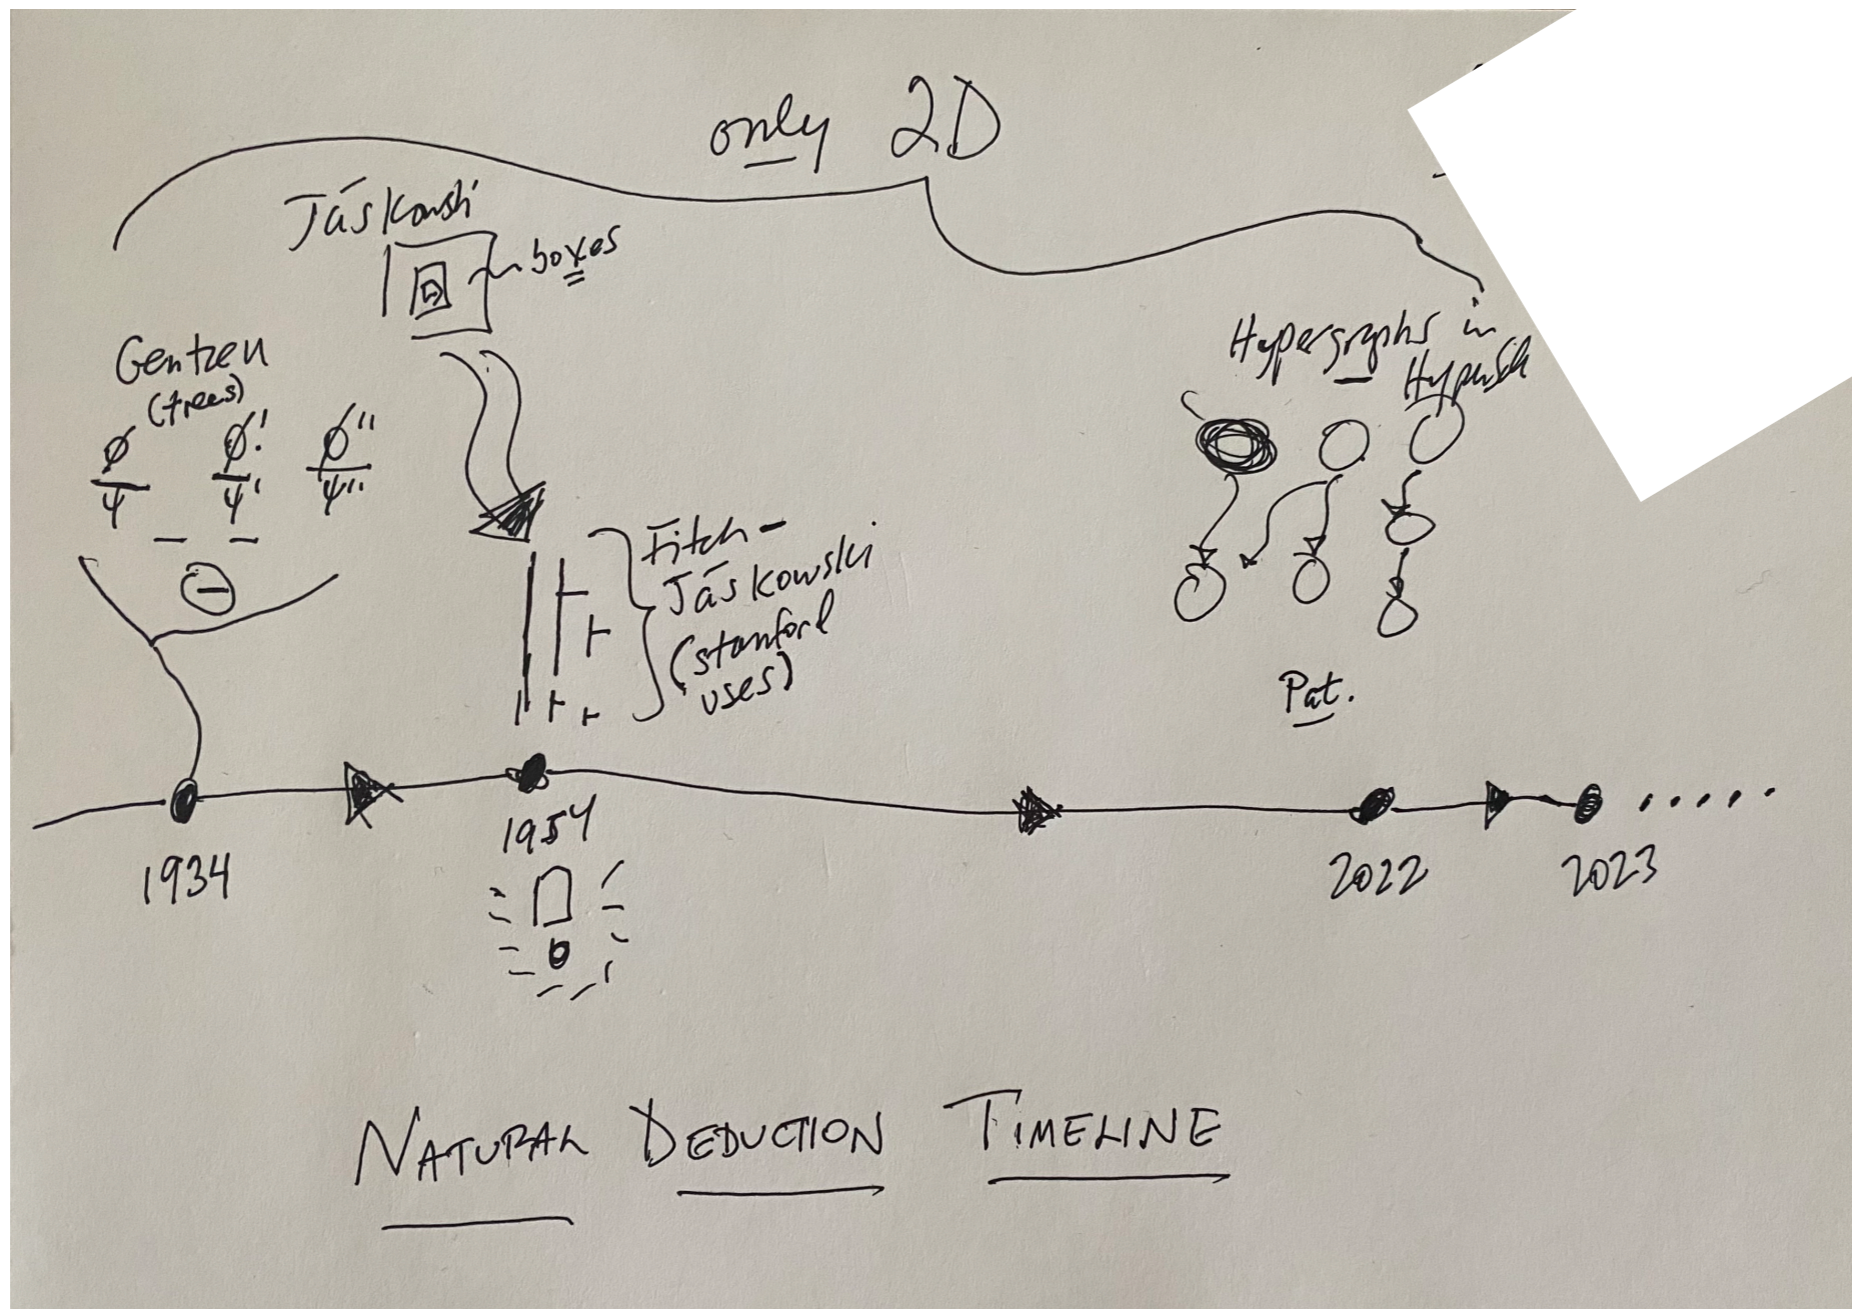 only 2D
Jáskowski
boxes
Gentzen
(trees)
φ φ' φ"
ψ ψ' ψ"
Fitch-
Jáskowski
(stanford
uses)
Hypergraphs in
Pat.
1934
1954
2022
2023
NATURAL DEDUCTION TIMELINE